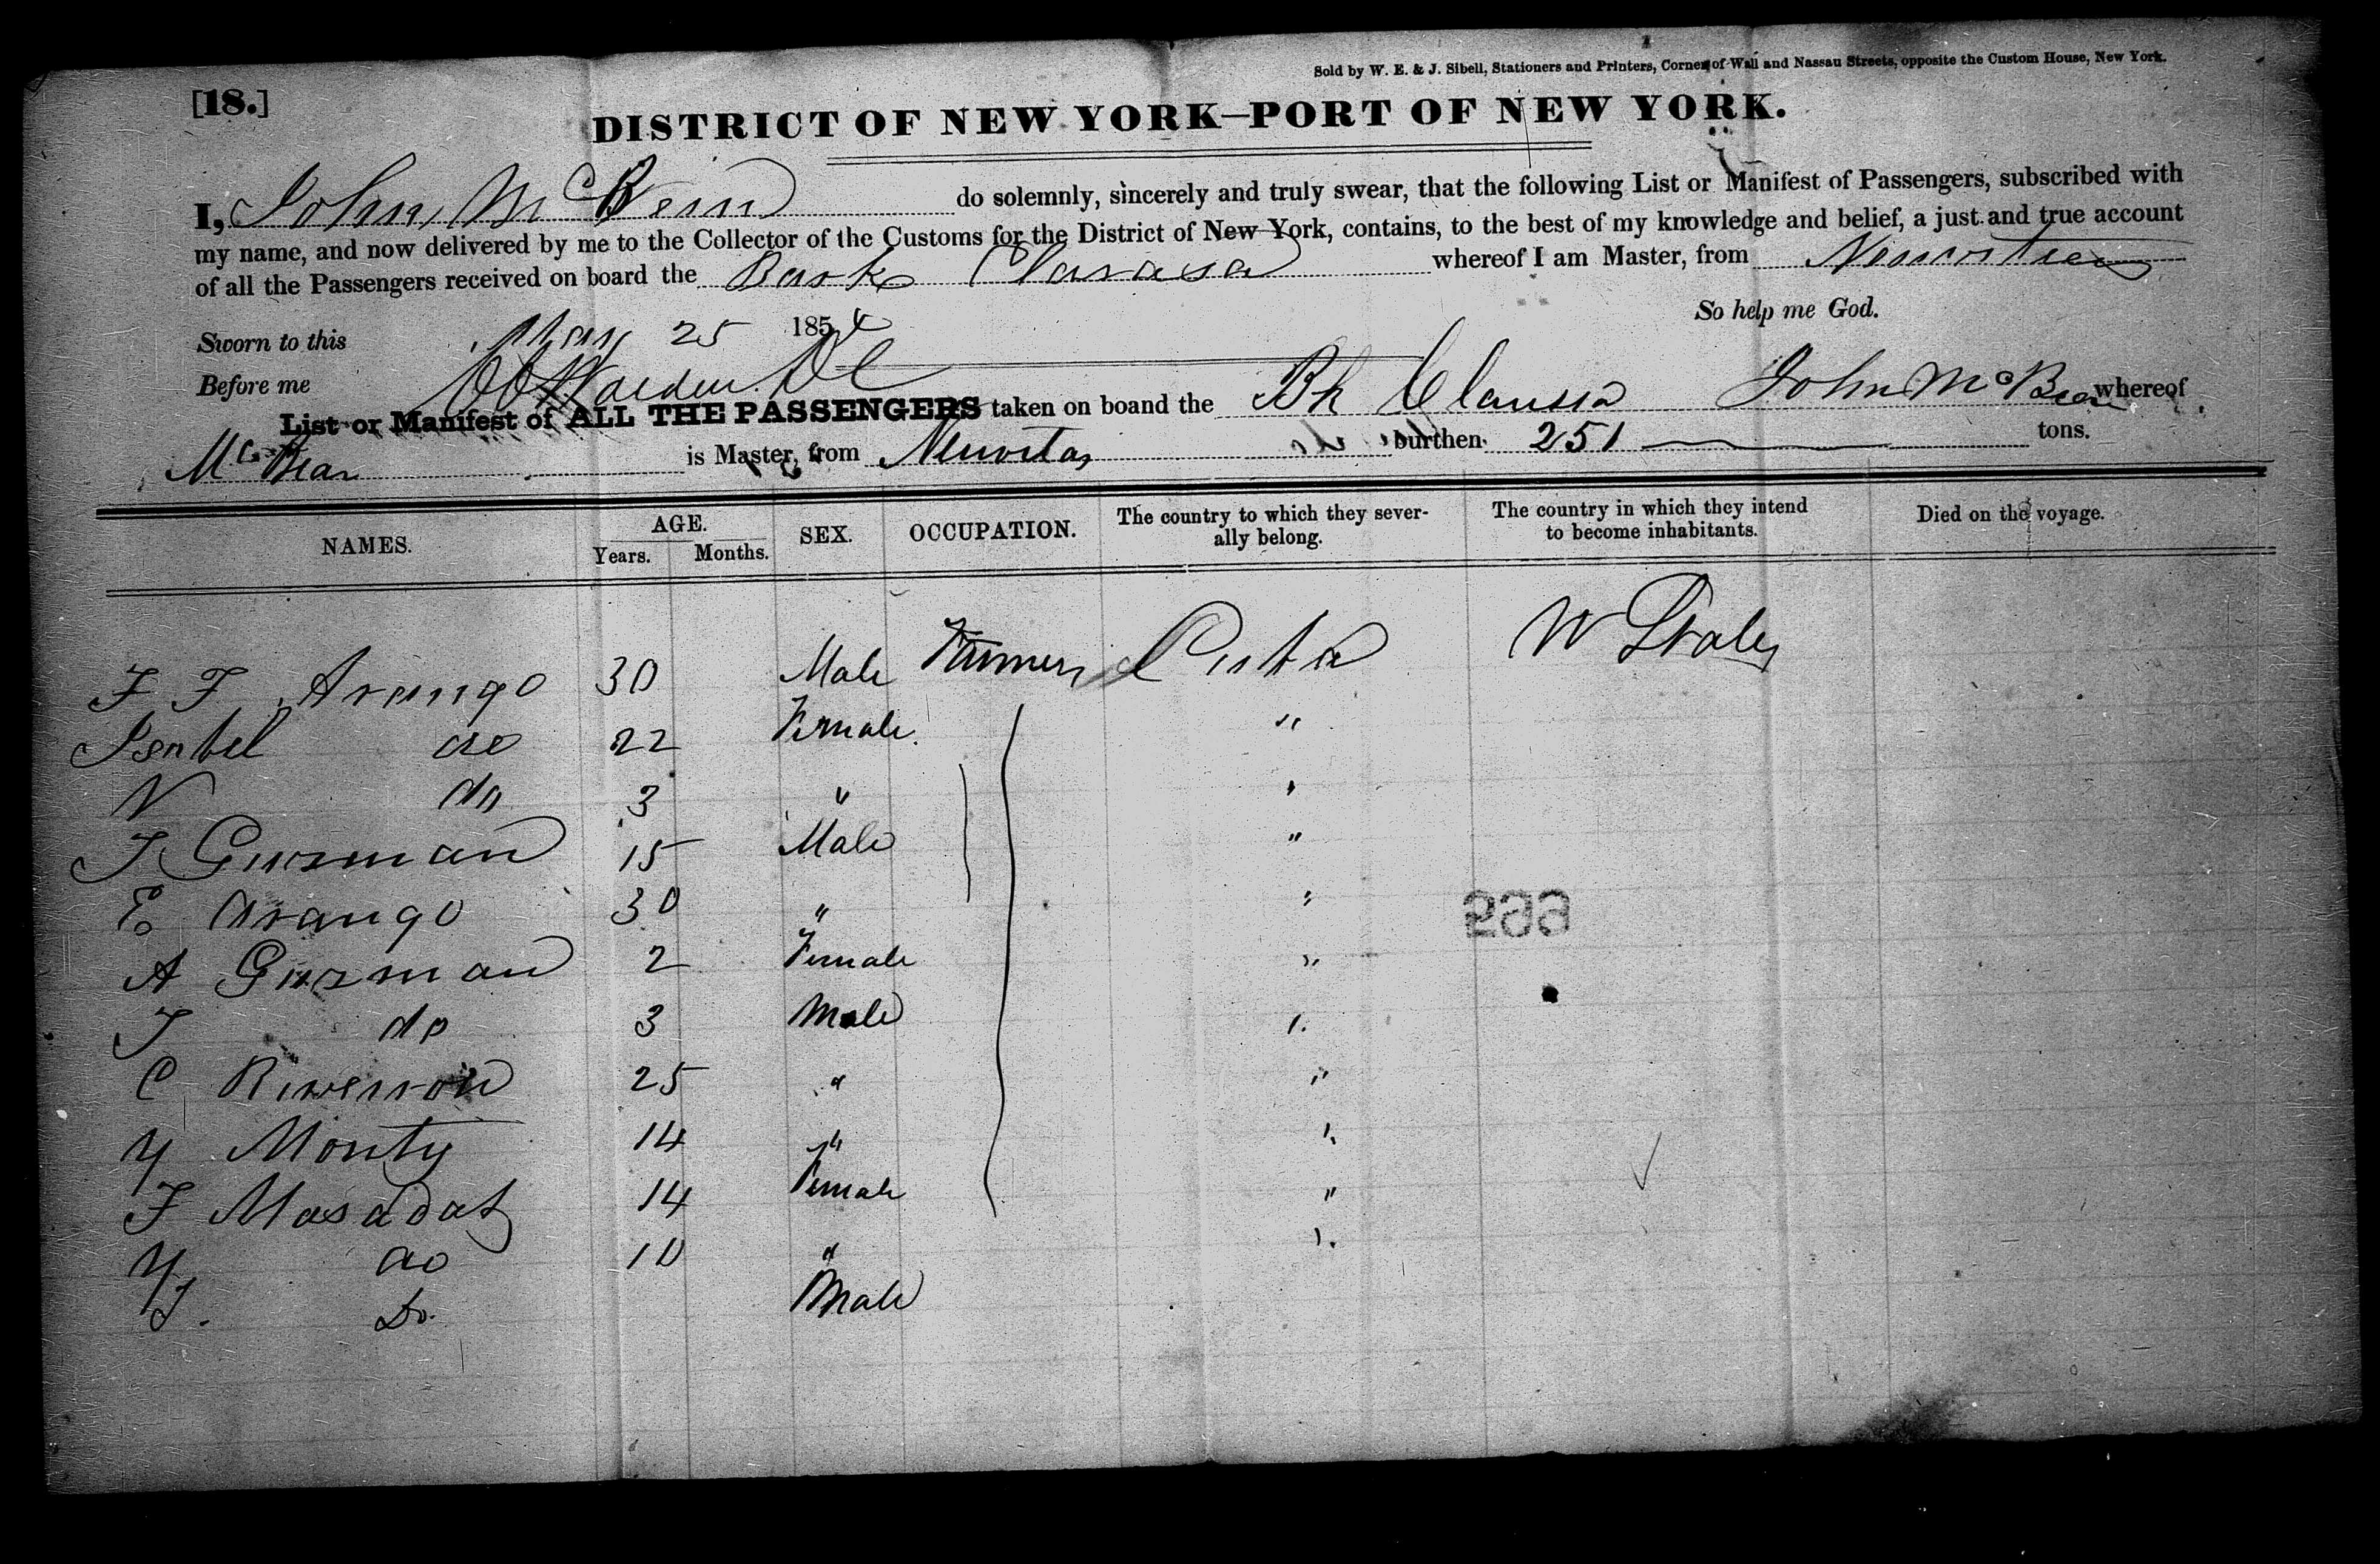 Sold by W. E. & J. Sibell, Stationers and Printers, Corner of Wall and Nassau Streets, opposite the Custom House, New York.
[18.]
DISTRICT OF NEW YORK—PORT OF NEW YORK.
I, John McBean do solemnly, sincerely and truly swear, that the following List or Manifest of Passengers, subscribed with
my name, and now delivered by me to the Collector of the Customs for the District of New York, contains, to the best of my knowledge and belief, a just and true account
of all the Passengers received on board the Bark whereof I am Master, from Nuevitas
So help me God.
Sworn to this May 25 1854
Before me
List or Manifest of ALL THE PASSENGERS taken on boand the Bk John McBean whereof
McBean is Master, from Nuevitas burthen 251 tons.
NAMES. AGE. Years. Months. SEX. OCCUPATION. The country to which they severally belong. The country in which they intend to become inhabitants. Died on the voyage.
F F Arango 30 Male Farmer Cuba States
Isabel do 22 Female "
N do 3 " "
J Guzman 15 Male "
E Arango 30 " "
A Guzman 2 Female "
J do 3 Male "
C 25 " "
Y Monty 14 " "
F Masadat 14 Female "
Y do 10 " "
J. Do. Male